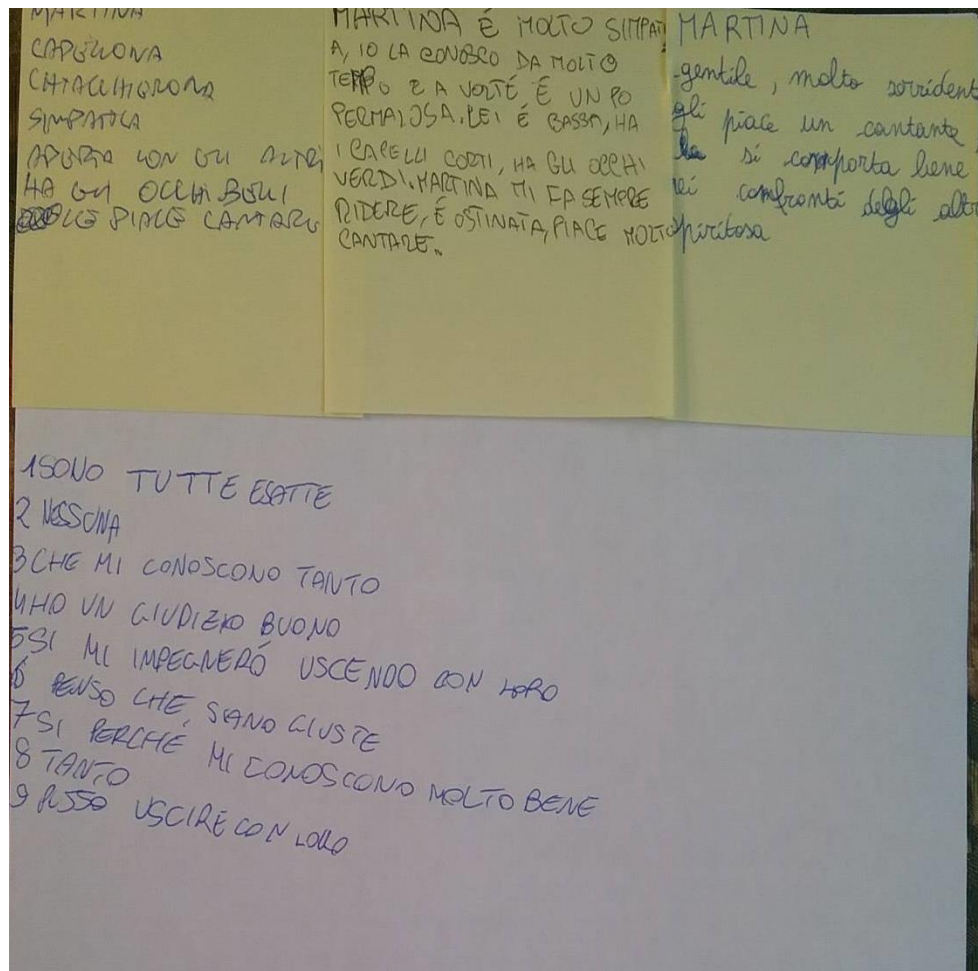 MARTINA
CAPELLONA
CHIACCHIERONA
SIMPATICA
APERTA CON GLI ALTRI
HA GLI OCCHI BELLI
LE PIACE CANTARE
MARTINA É MOLTO SIMPATI
A, IO LA CONOSCO DA MOLTO
TEMPO E A VOLTÉ É UN PO
PERMALOSA. LEI É BASSA, HA
I CAPELLI CORTI, HA GLI OCCHI
VERDI. MARTINA MI FA SEMPRE
RIDERE, É OSTINATA, PIACE MOLTO
CANTARE.
MARTINA
-gentile, molto sorrident
gli piace un cantante,
si comporta bene
ei confronti degli altr
piritosa
1 SONO TUTTE ESATTE
2 NESSUNA
3 CHE MI CONOSCONO TANTO
4 HO UN GIUDIZIO BUONO
5 SI MI IMPEGNERÓ USCENDO CON LORO
6 PENSO CHE SIANO GIUSTE
7 SI PERCHÉ MI CONOSCONO MOLTO BENE
8 TANTO
9 POSSO USCIRE CON LORO